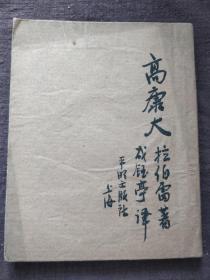 高康大
拉伯雷著
成鈺亭译
平明出版社
上海